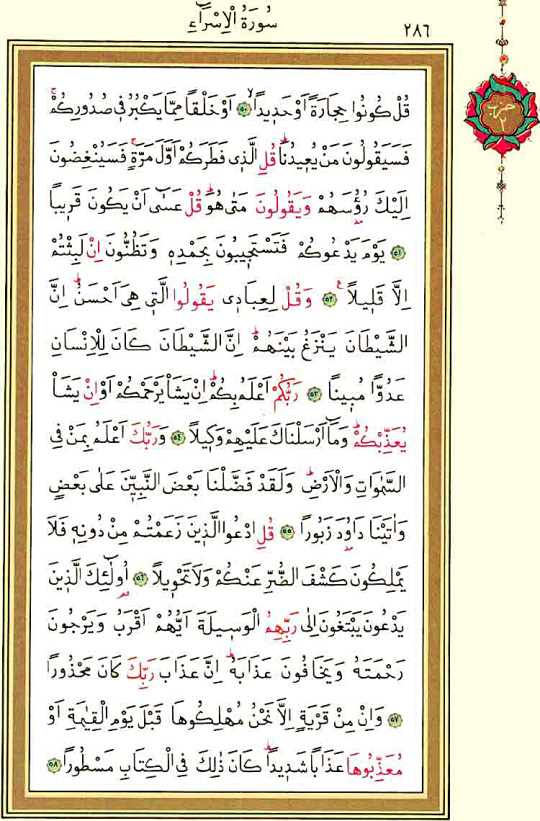 سُورَةُ الْاِسْرَٓاءِ
٢٨٦
قُلْ كُونُوا حِجَارَةً اَوْ حَد۪يدًاۙ ﴿٥٠﴾ اَوْ خَلْقًا مِمَّا يَكْبُرُ ف۪ي صُدُورِكُمْۚ
فَسَيَقُولُونَ مَنْ يُع۪يدُنَاۜ قُلِ الَّذ۪ي فَطَرَكُمْ اَوَّلَ مَرَّةٍۚ فَسَيُنْغِضُونَ
اِلَيْكَ رُؤُ۫سَهُمْ وَيَقُولُونَ مَتٰى هُوَۜ قُلْ عَسٰٓى اَنْ يَكُونَ قَر۪يبًا
﴿٥١﴾ يَوْمَ يَدْعُوكُمْ فَتَسْتَج۪يبُونَ بِحَمْدِه۪ وَتَظُنُّونَ اِنْ لَبِثْتُمْ
اِلَّا قَل۪يلًا۟ ﴿٥٢﴾ وَقُلْ لِعِبَاد۪ي يَقُولُوا الَّت۪ي هِيَ اَحْسَنُۜ اِنَّ
الشَّيْطَانَ يَنْزَغُ بَيْنَهُمْۜ اِنَّ الشَّيْطَانَ كَانَ لِلْاِنْسَانِ
عَدُوًّا مُب۪ينًا ﴿٥٣﴾ رَبُّكُمْ اَعْلَمُ بِكُمْۜ اِنْ يَشَأْ يَرْحَمْكُمْ اَوْ اِنْ يَشَأْ
يُعَذِّبْكُمْۜ وَمَٓا اَرْسَلْنَاكَ عَلَيْهِمْ وَك۪يلًا ﴿٥٤﴾ وَرَبُّكَ اَعْلَمُ بِمَنْ فِي
السَّمٰوَاتِ وَالْاَرْضِۜ وَلَقَدْ فَضَّلْنَا بَعْضَ النَّبِيّ۪نَ عَلٰى بَعْضٍ
وَاٰتَيْنَا دَاوُ۫دَ زَبُورًا ﴿٥٥﴾ قُلِ ادْعُوا الَّذ۪ينَ زَعَمْتُمْ مِنْ دُونِه۪ فَلَا
يَمْلِكُونَ كَشْفَ الضُّرِّ عَنْكُمْ وَلَا تَحْو۪يلًا ﴿٥٦﴾ اُو۬لٰٓئِكَ الَّذ۪ينَ
يَدْعُونَ يَبْتَغُونَ اِلٰى رَبِّهِمُ الْوَس۪يلَةَ اَيُّهُمْ اَقْرَبُ وَيَرْجُونَ
رَحْمَتَهُ وَيَخَافُونَ عَذَابَهُۜ اِنَّ عَذَابَ رَبِّكَ كَانَ مَحْذُورًا
﴿٥٧﴾ وَاِنْ مِنْ قَرْيَةٍ اِلَّا نَحْنُ مُهْلِكُوهَا قَبْلَ يَوْمِ الْقِيٰمَةِ اَوْ
مُعَذِّبُوهَا عَذَابًا شَد۪يدًاۜ كَانَ ذٰلِكَ فِي الْكِتَابِ مَسْطُورًا ﴿٥٨﴾